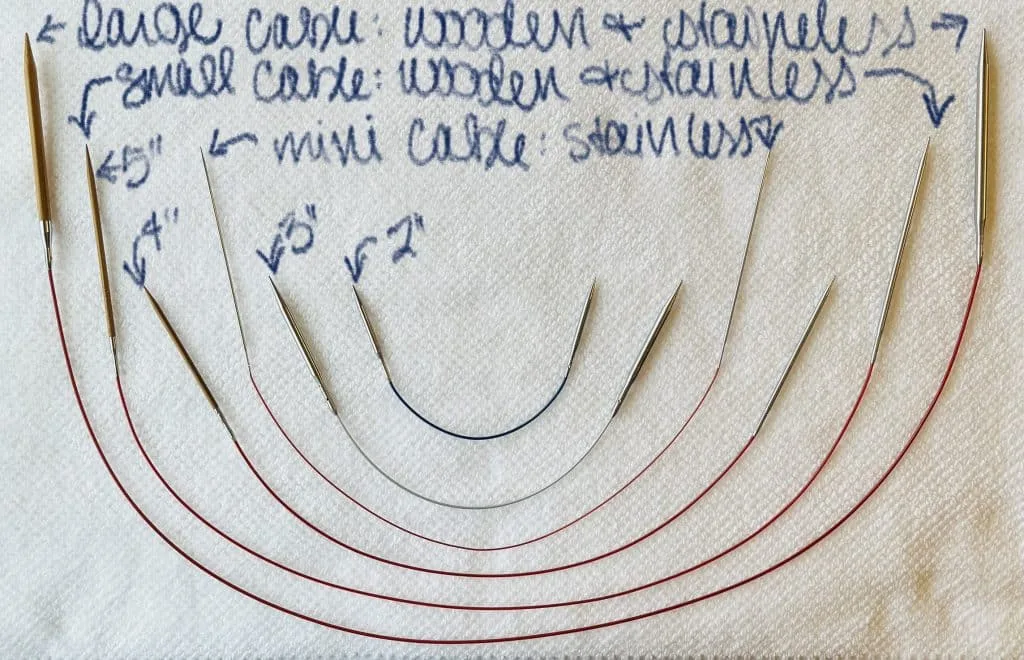 ← large cable: wooden & stainless →
small cable: wooden & stainless
← 5" ← mini cable: stainless
4" 3" 2"